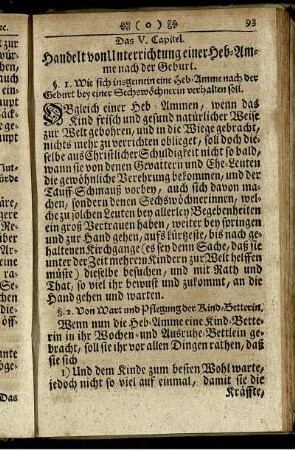 ( o ) 93
Das V. Capitel.
Handelt von Unterrichtung einer Heb-Am-
me nach der Geburt.
§. 1. Wie sich insgemein eine Heb-Amme nach der
Geburt bey einer Sechswöchnerin verhalten soll.
OBgleich einer Heb-Ammen, wenn das
Kind frisch und gesund natürlicher Weise
zur Welt gebohren, und in die Wiege gebracht,
nichts mehr zu verrichten oblieget, soll doch die-
selbe aus Christlicher Schuldigkeit nicht so bald,
wann sie von denen Gevattern und Ehe-Leuten
die gewöhnliche Verehrung bekommen, und der
Tauff-Schmauß vorbey, auch sich davon ma-
chen, sondern denen Sechswöchnerinnen, wel-
che zu solchen Leuten bey allerley Begebenheiten
ein groß Vertrauen haben, weiter beyspringen
und zur Hand gehen, aufs kürtzeste, bis nach ge-
haltenen Kirchgange (es sey denn Sache, daß sie
unter der Zeit mehren Kindern zur Welt helffen
müste) dieselbe besuchen, und mit Rath und
That, so viel ihr bewust und zukommt, an die
Hand gehen und warten.
§. 2. Von Wart und Pflegung der Kind-Betterin.
Wenn nun die Heb-Amme eine Kind-Bette-
rin in ihr Wochen- und Ausruhe-Bettlein ge-
bracht, soll sie ihr vor allen Dingen rathen, daß
sie sich
1) Und dem Kinde zum besten Wohl warte,
jedoch nicht so viel auf einmal, damit sie die
Kräffte,